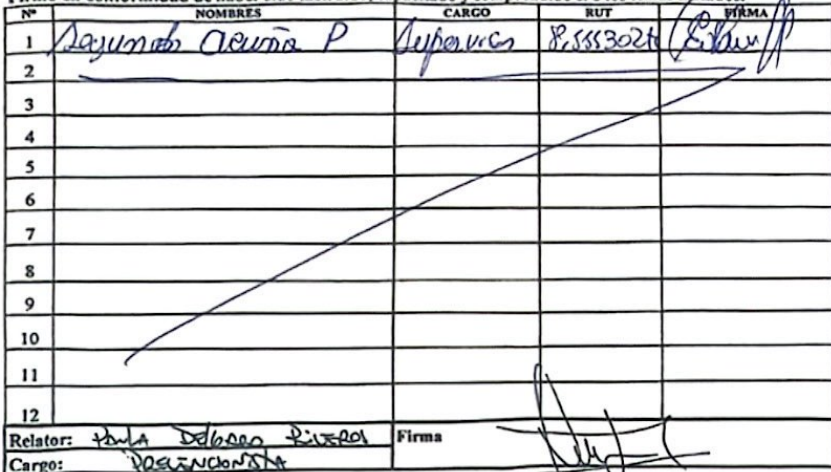 Nº NOMBRES CARGO RUT FIRMA
1 Segundo Acuña P Supervisor
2
3
4
5
6
7
8
9
10
11
12
Relator: Paula Delgado Riveros Firma
Cargo: Prevencionista